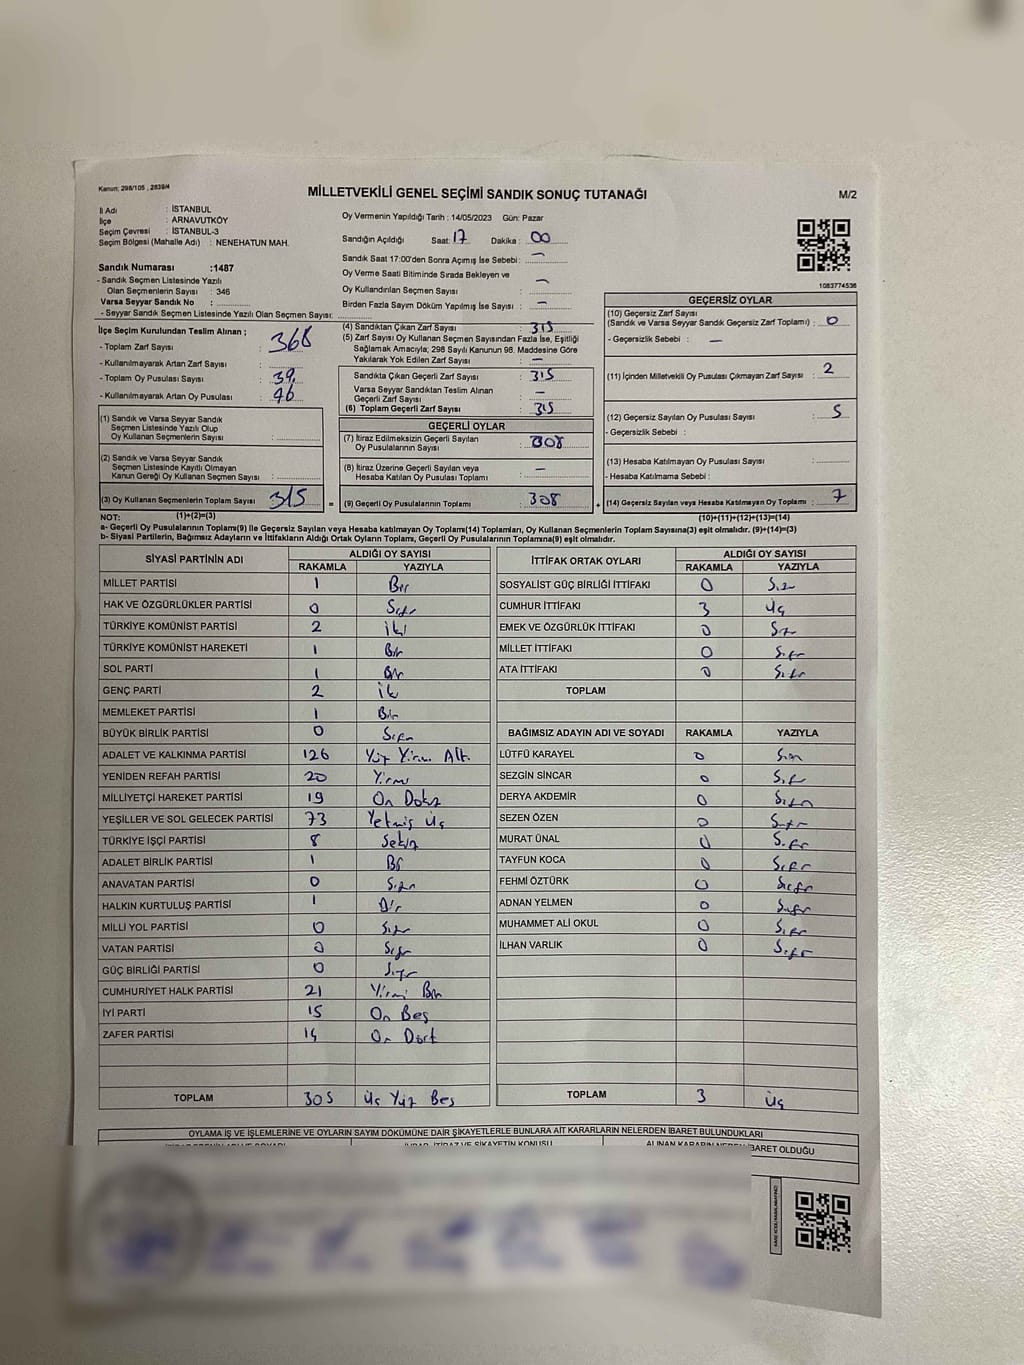 Kanun; 298/105 , 2839/4
MİLLETVEKİLİ GENEL SEÇİMİ SANDIK SONUÇ TUTANAĞI
M/2
İl Adı : İSTANBUL
İlçe : ARNAVUTKÖY
Seçim Çevresi : İSTANBUL-3
Seçim Bölgesi (Mahalle Adı) : NENEHATUN MAH.
Oy Vermenin Yapıldığı Tarih : 14/05/2023 Gün: Pazar
Sandığın Açıldığı Saat: 17 Dakika : 00
Sandık Saat 17:00'den Sonra Açımış İse Sebebi : —
Oy Verme Saati Bitiminde Sırada Bekleyen ve
Oy Kullandırılan Seçmen Sayısı : —
Birden Fazla Sayım Döküm Yapılmış İse Sayısı : —
1083774536
Sandık Numarası :1487
- Sandık Seçmen Listesinde Yazılı
Olan Seçmenlerin Sayısı : 346
Varsa Seyyar Sandık No :
- Seyyar Sandık Seçmen Listesinde Yazılı Olan Seçmen Sayısı:
İlçe Seçim Kurulundan Teslim Alınan ;
- Toplam Zarf Sayısı : 368
- Kullanılmayarak Artan Zarf Sayısı :
- Toplam Oy Pusulası Sayısı :
- Kullanılmayarak Artan Oy Pusulası :
(1) Sandık ve Varsa Seyyar Sandık
Seçmen Listesinde Yazılı Olup
Oy Kullanan Seçmenlerin Sayısı :
(2) Sandık ve Varsa Seyyar Sandık
Seçmen Listesinde Kayıtlı Olmayan
Kanun Gereği Oy Kullanan Seçmen Sayısı :
(3) Oy Kullanan Seçmenlerin Toplam Sayısı : 315
(4) Sandıktan Çıkan Zarf Sayısı : 315
(5) Zarf Sayısı Oy Kullanan Seçmen Sayısından Fazla İse, Eşitliği
Sağlamak Amacıyla; 298 Sayılı Kanunun 98. Maddesine Göre
Yakılarak Yok Edilen Zarf Sayısı : —
Sandıkta Çıkan Geçerli Zarf Sayısı : 315
Varsa Seyyar Sandıktan Teslim Alınan
Geçerli Zarf Sayısı : —
(6) Toplam Geçerli Zarf Sayısı : 315
GEÇERLİ OYLAR
(7) İtiraz Edilmeksizin Geçerli Sayılan
Oy Pusulalarının Sayısı : 308
(8) İtiraz Üzerine Geçerli Sayılan veya
Hesaba Katılan Oy Pusulası Toplamı : —
= (9) Geçerli Oy Pusulalarının Toplamı : 308
GEÇERSİZ OYLAR
(10) Geçersiz Zarf Sayısı
(Sandık ve Varsa Seyyar Sandık Geçersiz Zarf Toplamı) : 0
- Geçersizlik Sebebi : —
(11) İçinden Milletvekili Oy Pusulası Çıkmayan Zarf Sayısı : 2
(12) Geçersiz Sayılan Oy Pusulası Sayısı : 5
- Geçersizlik Sebebi :
(13) Hesaba Katılmayan Oy Pusulası Sayısı :
- Hesaba Katılmama Sebebi :
+ (14) Geçersiz Sayılan veya Hesaba Katılmayan Oy Toplamı : 7
NOT: (1)+(2)=(3) (10)+(11)+(12)+(13)=(14)
a- Geçerli Oy Pusulalarının Toplamı(9) ile Geçersiz Sayılan veya Hesaba katılmayan Oy Toplamı(14) Toplamları, Oy Kullanan Seçmenlerin Toplam Sayısına(3) eşit olmalıdır. (9)+(14)=(3)
b- Siyasi Partilerin, Bağımsız Adayların ve İttifakların Aldığı Ortak Oyların Toplamı, Geçerli Oy Pusulalarının Toplamına(9) eşit olmalıdır.
SİYASİ PARTİNİN ADI ALDIĞI OY SAYISI
RAKAMLA YAZIYLA
MİLLET PARTİSİ 1 Bir
HAK VE ÖZGÜRLÜKLER PARTİSİ 0 Sıfır
TÜRKİYE KOMÜNİST PARTİSİ 2 İki
TÜRKİYE KOMÜNİST HAREKETİ 1 Bir
SOL PARTİ 1 Bir
GENÇ PARTİ 2 İki
MEMLEKET PARTİSİ 1 Bir
BÜYÜK BİRLİK PARTİSİ 0 Sıfır
ADALET VE KALKINMA PARTİSİ 126 Yüz Yirmi Altı
YENİDEN REFAH PARTİSİ 20 Yirmi
MİLLİYETÇİ HAREKET PARTİSİ 19 On Dokuz
YEŞİLLER VE SOL GELECEK PARTİSİ 73 Yetmiş Üç
TÜRKİYE İŞÇİ PARTİSİ 8 Sekiz
ADALET BİRLİK PARTİSİ 1 Bir
ANAVATAN PARTİSİ 0 Sıfır
HALKIN KURTULUŞ PARTİSİ 1 Bir
MİLLİ YOL PARTİSİ 0 Sıfır
VATAN PARTİSİ 0 Sıfır
GÜÇ BİRLİĞİ PARTİSİ 0 Sıfır
CUMHURİYET HALK PARTİSİ 21 Yirmi Bir
İYİ PARTİ 15 On Beş
ZAFER PARTİSİ 14 On Dört
TOPLAM 305 Üç Yüz Beş
İTTİFAK ORTAK OYLARI ALDIĞI OY SAYISI
RAKAMLA YAZIYLA
SOSYALİST GÜÇ BİRLİĞİ İTTİFAKI 0 Sıfır
CUMHUR İTTİFAKI 3 Üç
EMEK VE ÖZGÜRLÜK İTTİFAKI 0 Sıfır
MİLLET İTTİFAKI 0 Sıfır
ATA İTTİFAKI 0 Sıfır
TOPLAM
BAĞIMSIZ ADAYIN ADI VE SOYADI RAKAMLA YAZIYLA
LÜTFÜ KARAYEL 0 Sıfır
SEZGİN SİNCAR 0 Sıfır
DERYA AKDEMİR 0 Sıfır
SEZEN ÖZEN 0 Sıfır
MURAT ÜNAL 0 Sıfır
TAYFUN KOCA 0 Sıfır
FEHMİ ÖZTÜRK 0 Sıfır
ADNAN YELMEN 0 Sıfır
MUHAMMET ALİ OKUL 0 Sıfır
İLHAN VARLIK 0 Sıfır
TOPLAM 3 Üç
OYLAMA İŞ VE İŞLEMLERİNE VE OYLARIN SAYIM DÖKÜMÜNE DAİR ŞİKAYETLERLE BUNLARA AİT KARARLARIN NELERDEN İBARET BULUNDUKLARI